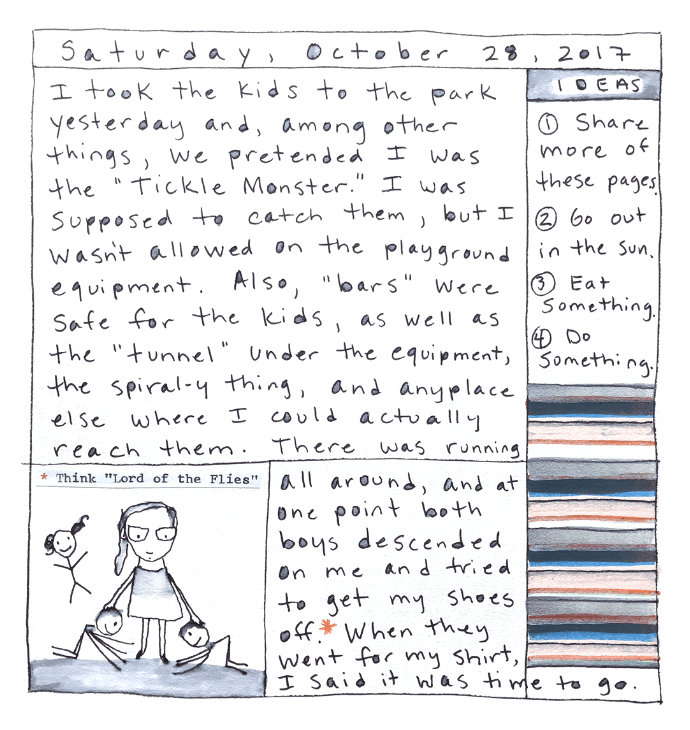 Saturday, October 28, 2017
I took the kids to the park
yesterday and, among other
things, we pretended I was
the "Tickle Monster." I was
supposed to catch them, but I
wasn't allowed on the playground
equipment. Also, "bars" were
safe for the kids, as well as
the "tunnel" under the equipment,
the spiral-y thing, and anyplace
else where I could actually
reach them. There was running
all around, and at
one point both
boys descended
on me and tried
to get my shoes
off.* When they
went for my shirt,
I said it was time to go.
* Think "Lord of the Flies"
IDEAS
① Share
more of
these pages.
② Go out
in the sun.
③ Eat
Something.
④ Do
Something.